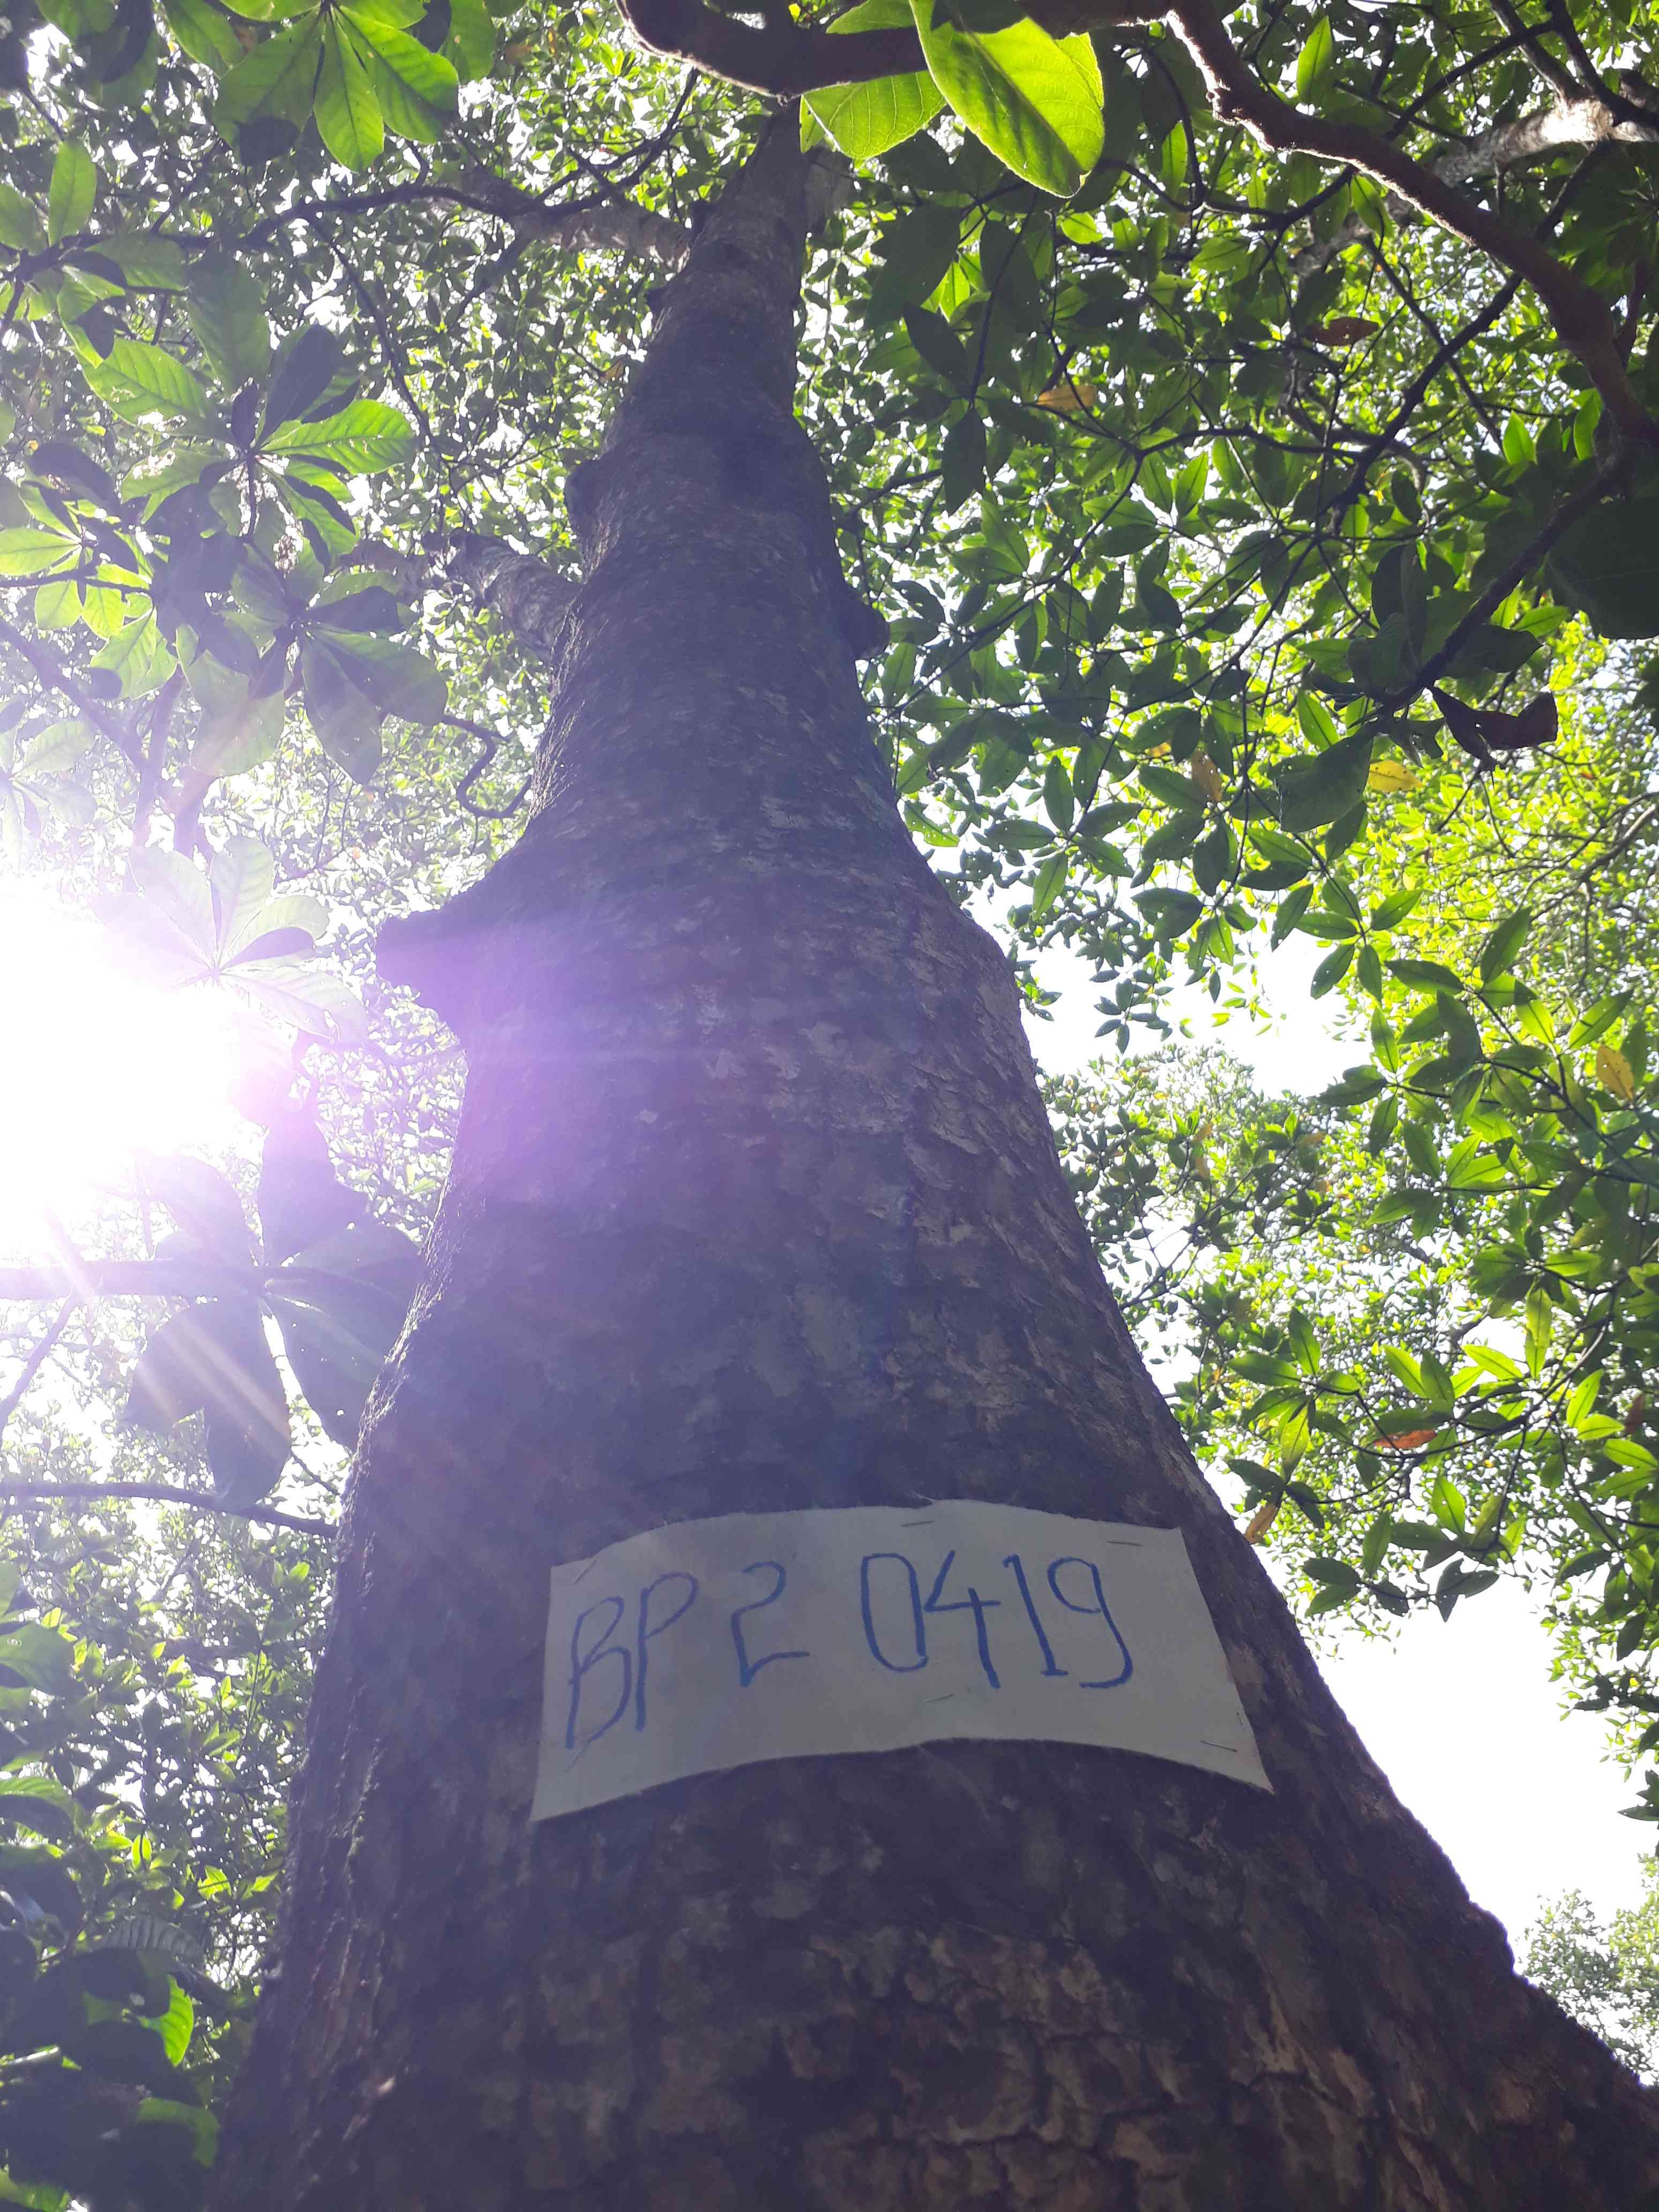 BP2 0419